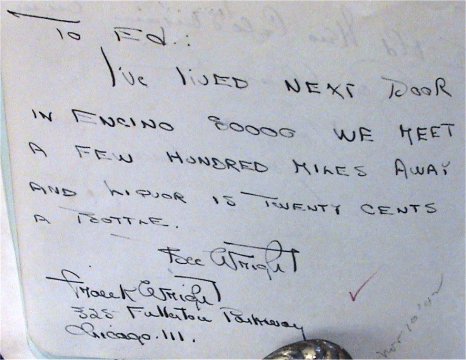 TO ED.:
I'VE LIVED NEXT DOOR
IN ENCINO 80000 WE MEET
A FEW HUNDRED MILES AWAY
AND LIQUOR IS TWENTY CENTS
A BOTTLE.
Wright
Frank Wright
325 Fullerton Parkway
Chicago. Ill.